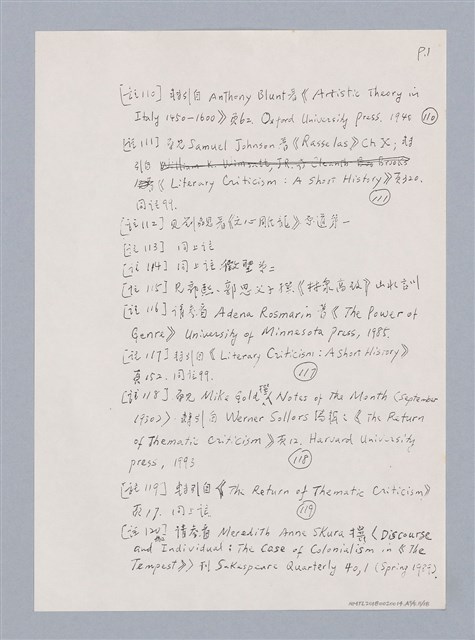 P.1
[註110] 轉引自 Anthony Blunt 著《Artistic Theory in
Italy 1450-1600》頁62. Oxford University Press. 1945 110
[註111] 看見 Samuel Johnson 著《Rasselas》Ch X; 轉
引自 William K. Wimsatt, JR. & Cleanth Brooks
《Literary Criticism: A Short History》頁320.
同註99. 111
[註112] 見劉勰著《文心雕龍》原道第一
[註113] 同上註
[註114] 同上註 徵聖第二
[註115] 見郭熙、郭思父子撰《林泉高致》山水訓
[註116] 請參看 Adena Rosmarin 著《The Power of
Genre》 University of Minnesota press, 1985.
[註117] 轉引自《Literary Criticism: A Short History》
頁152. 同註99. 117
[註118] 看見 Mike Gold 撰〈Notes of the Month (September
1930)〉轉引自 Werner Sollors 編輯之《The Return
of Thematic Criticism》頁12. Harvard University
press, 1993 118
[註119] 轉引自《The Return of Thematic Criticism》
頁17. 同上註 119
[註120] 請參看 Meredith Anne Skura 撰〈Discourse
and Individual: The Case of Colonialism in《The
Tempest》〉刊 Sakespeare Quarterly 40,1 (Spring 1989).